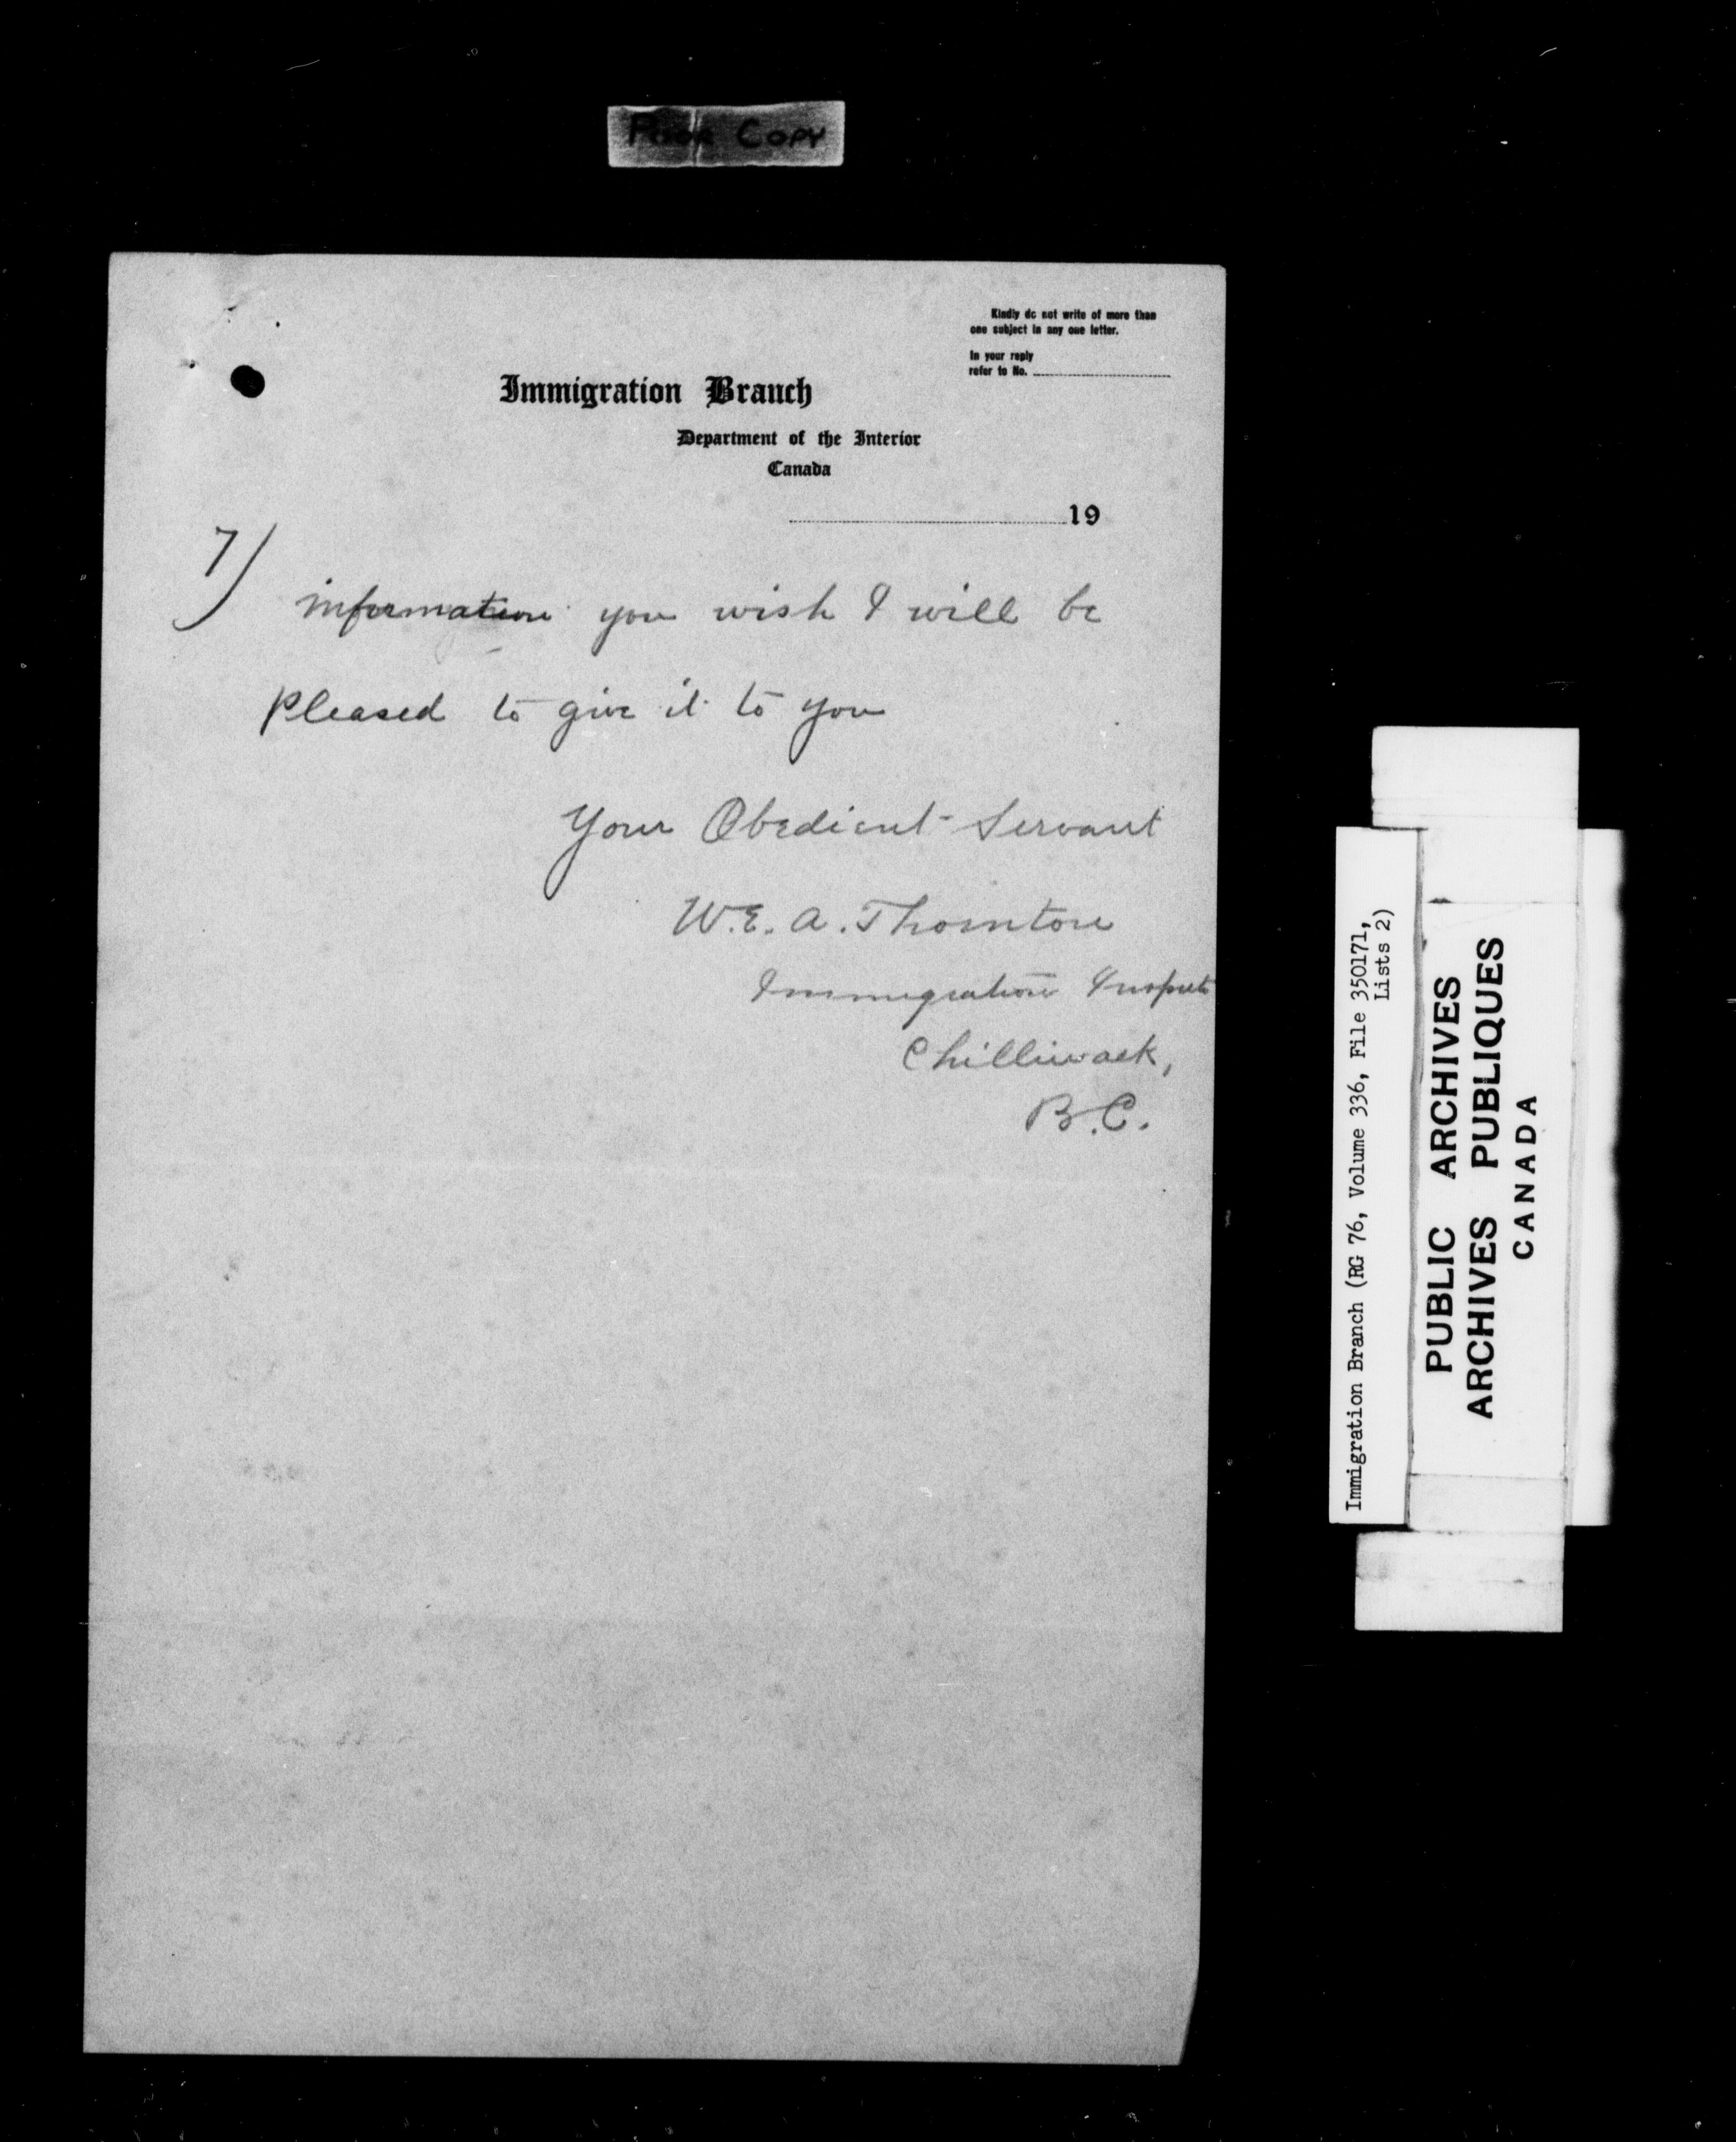 Poor Copy
Kindly do not write of more than
one subject in any one letter.
In your reply
refer to No.
Immigration Branch
Department of the Interior
Canada
19
7)
information you wish I will be
pleased to give it to you
Your Obedient Servant
W.E.A. Thornton
Immigration
Chilliwack,
B.C.
Immigration Branch (RG 76, Volume 336, File 350171,
Lists 2)
PUBLIC ARCHIVES
ARCHIVES PUBLIQUES
CANADA